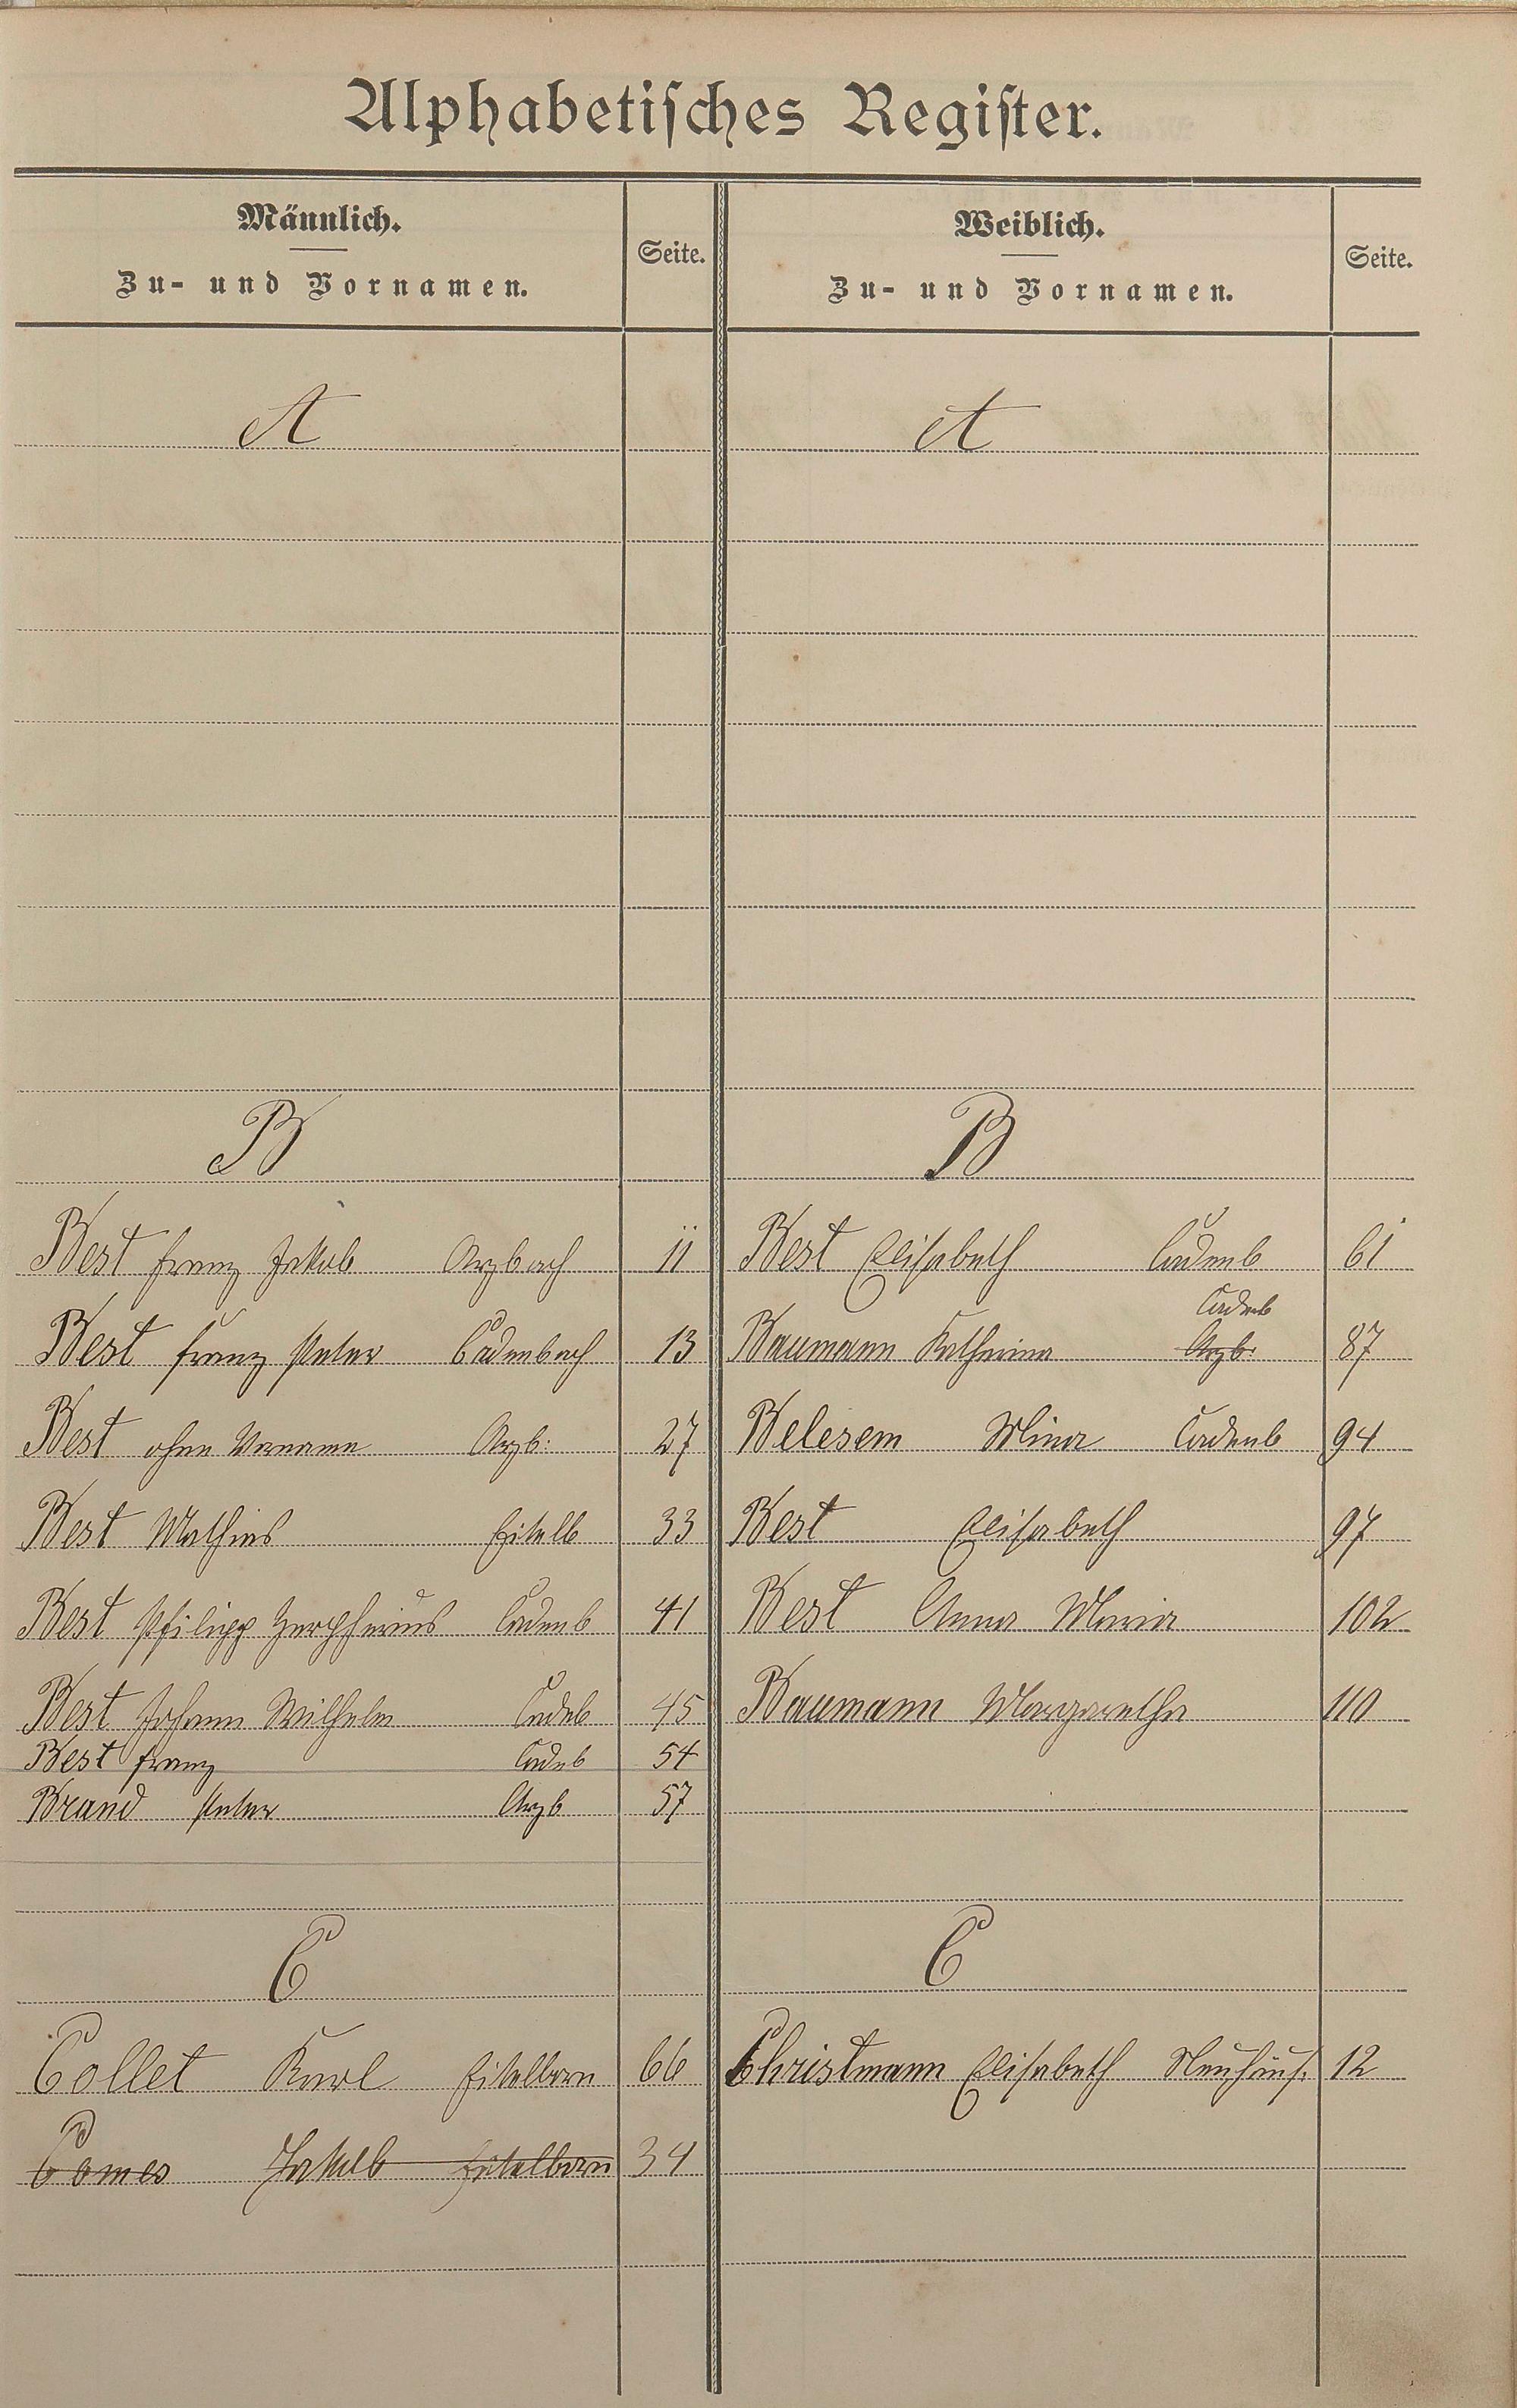 Alphabetisches Register.
Männlich.
Zu- und Vornamen.
Seite.
Weiblich.
Zu- und Vornamen.
Seite.
A
A
B
B
Best Franz Jakob Arzbach 11
Best Elisabeth Cadenb 61
Best Franz Peter Cadenbach 13
Cadenb
Baumann Katharina Arzb. 87
Best ohne Vorname Arzb: 27
Belesem Mina Cadenb 94
Best Mathias Eitelb 33
Best Elisabeth 97
Best Philipp Cadenb 41
Best Anna Maria 102
Best Johann Wilhelm Cadeb 45
Baumann Margaretha 110
Best Franz Cadnb 54
Brand Peter Arzb 57
C
C
Collet Karl Eitelborn 66
Christmann Elisabeth Neuhäus. 12
Comes Jakob Eitelborn 34